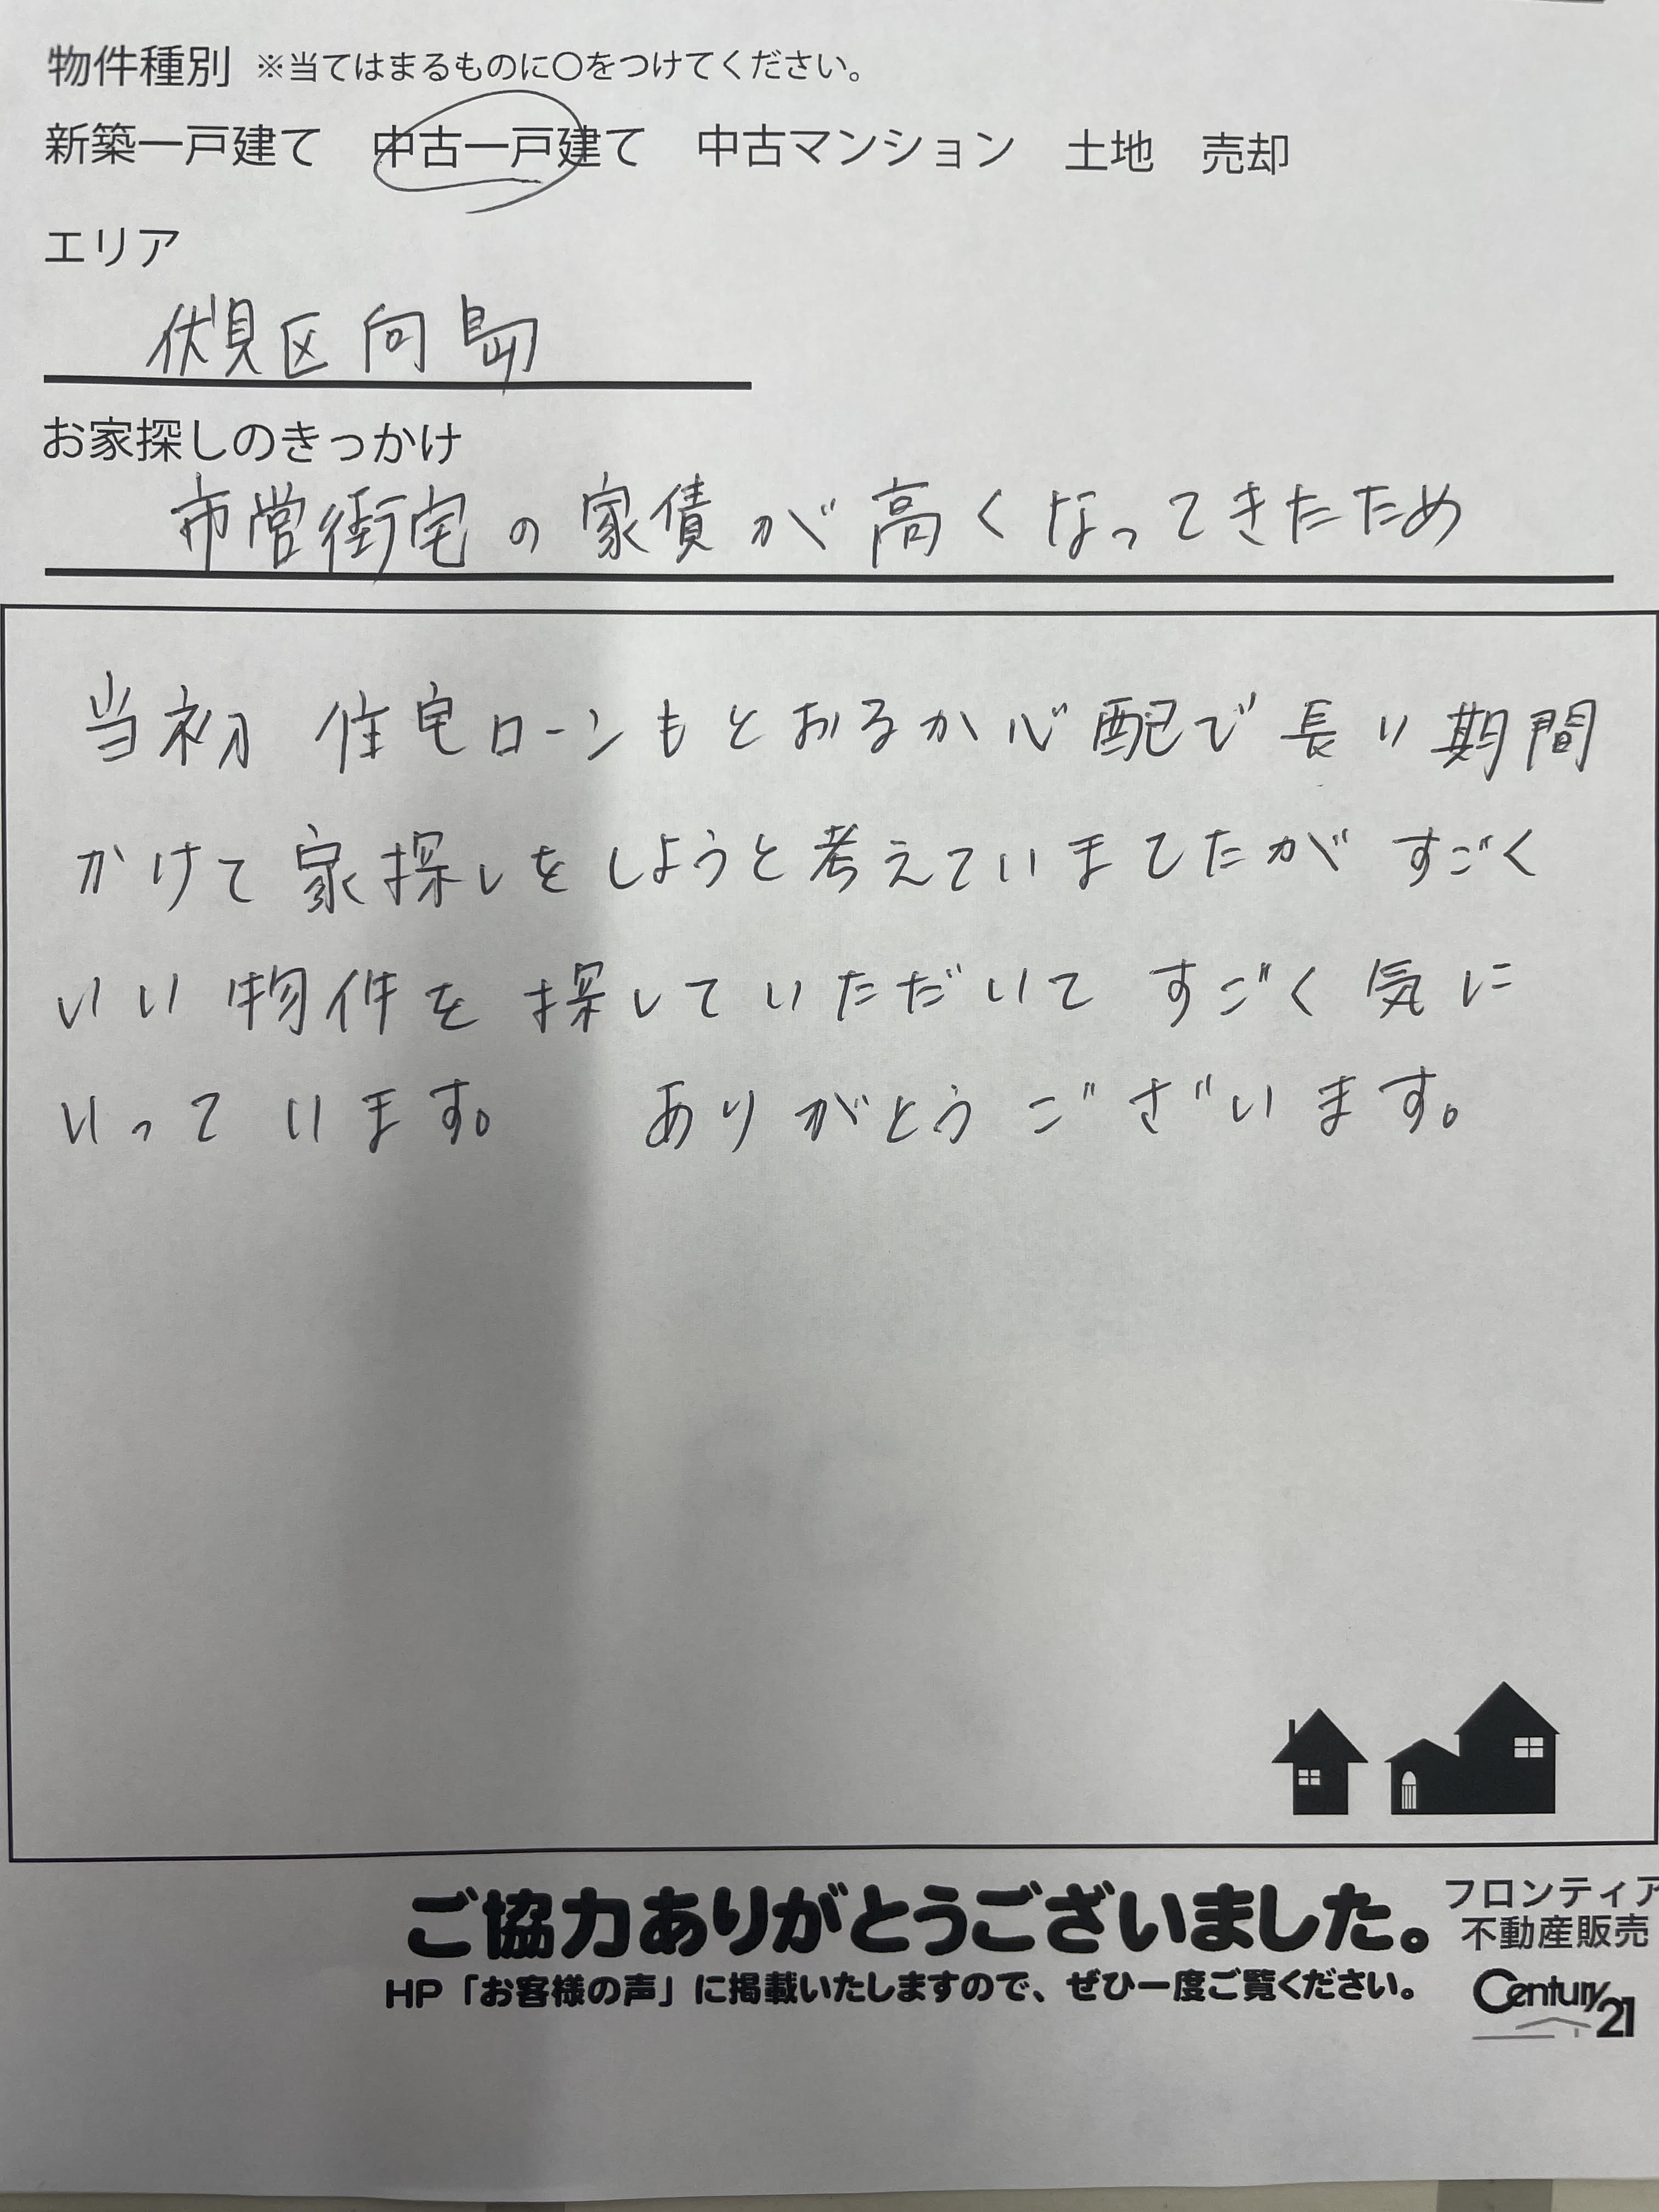 物件種別 ※当てはまるものに〇をつけてください。
新築一戸建て 中古一戸建て 中古マンション 土地 売却
エリア
伏見区向島
お家探しのきっかけ
市営街宅の家債が高くなってきたため
当初 住宅ローンもとおるか心配で長い期間
かけて家探しをしようと考えていましたがすごく
いい物件を探していただいてすごく気に
いっています。 ありがとうございます。
ご協力ありがとうございました。
HP「お客様の声」に掲載いたしますので、ぜひ一度ご覧ください。
フロンティア
不動産販売
Century 21